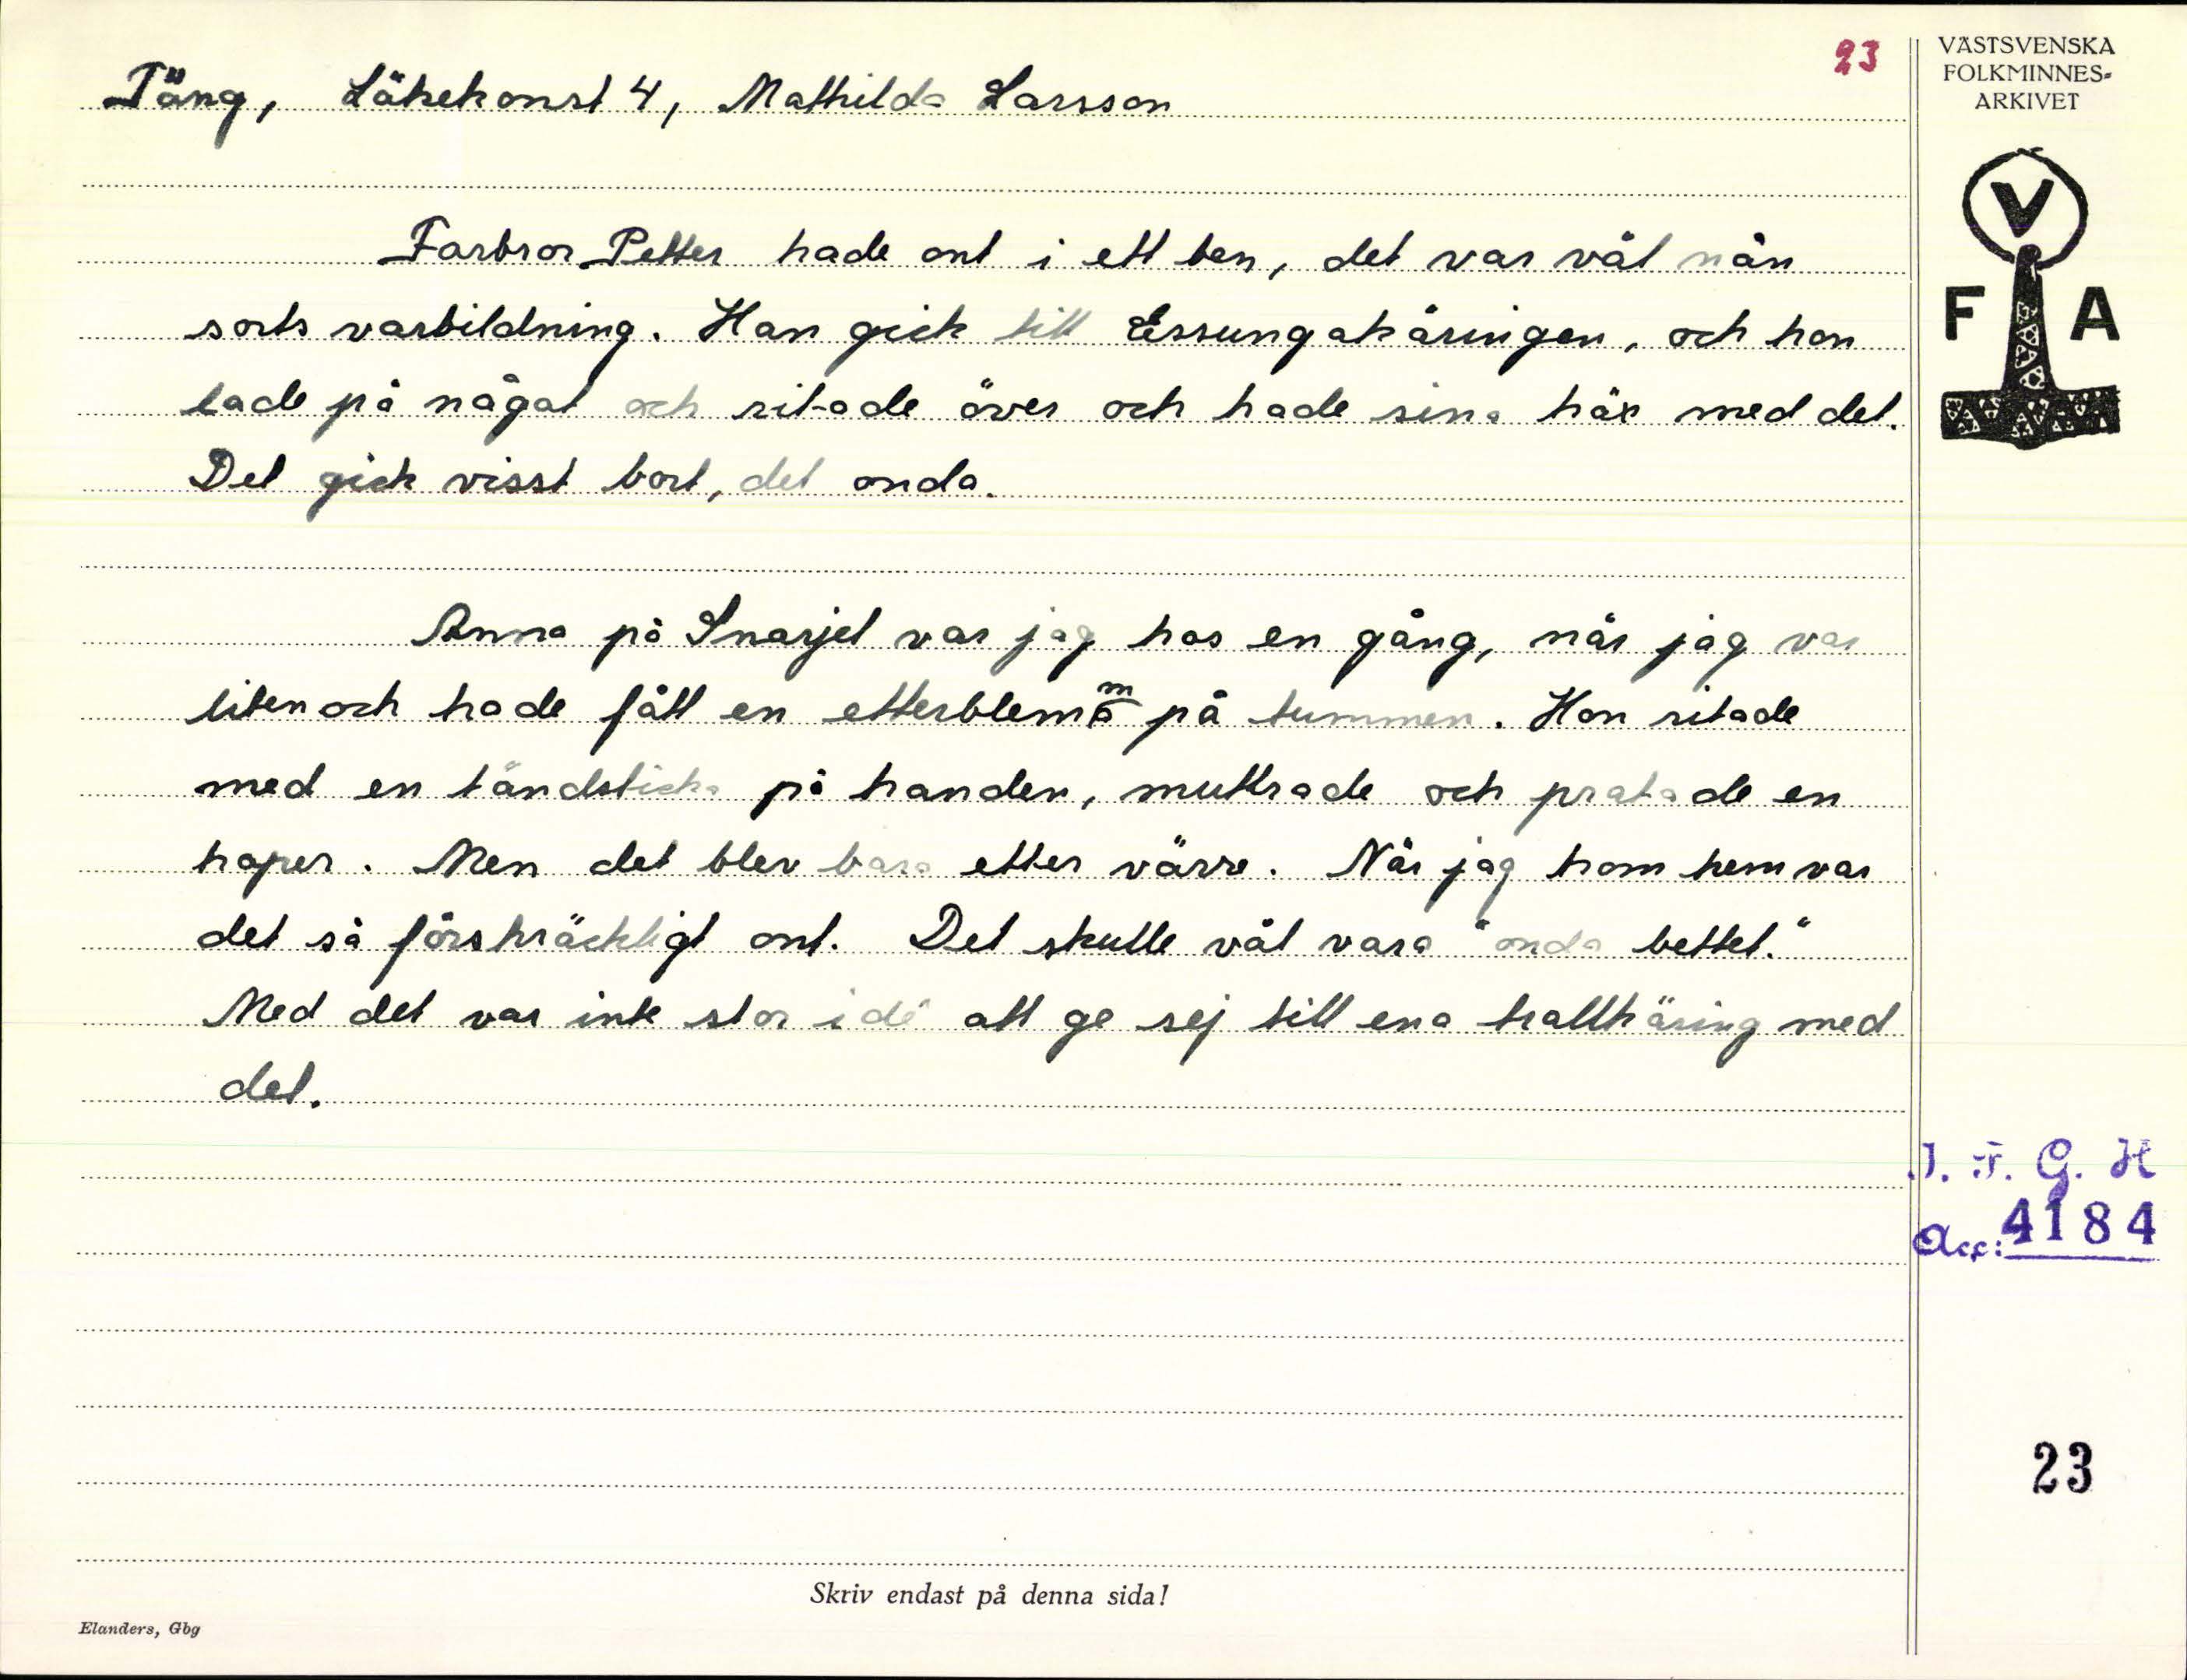 23
Täng, Läkekonst 4, Mathilda Larsson
Farbror Petter hade ont i ett ben, det var väl nån
sorts varbildning. Han gick till Essungakäringen, och hon
lade på något och ritade över och hade sina häx med det.
Det gick visst bort, det onda.
Anna på Snarjet var jag hos en gång, när jag var
liten och hade fått en etterblemm på tummen. Hon ritade
med en tändsticka på handen, muttrade och pratade en
haper. Men det blev bara etter värre. När jag kom hem var
det så förskräckligt ont. Det skulle väl vara "onda bettet."
Med det var inte stor idé att ge sej till ena trallkäring med
det.
VÄSTSVENSKA
FOLKMINNES-
ARKIVET
V
F A
I. F. G. H
Acc: 4184
23
Skriv endast på denna sida!
Elanders, Gbg